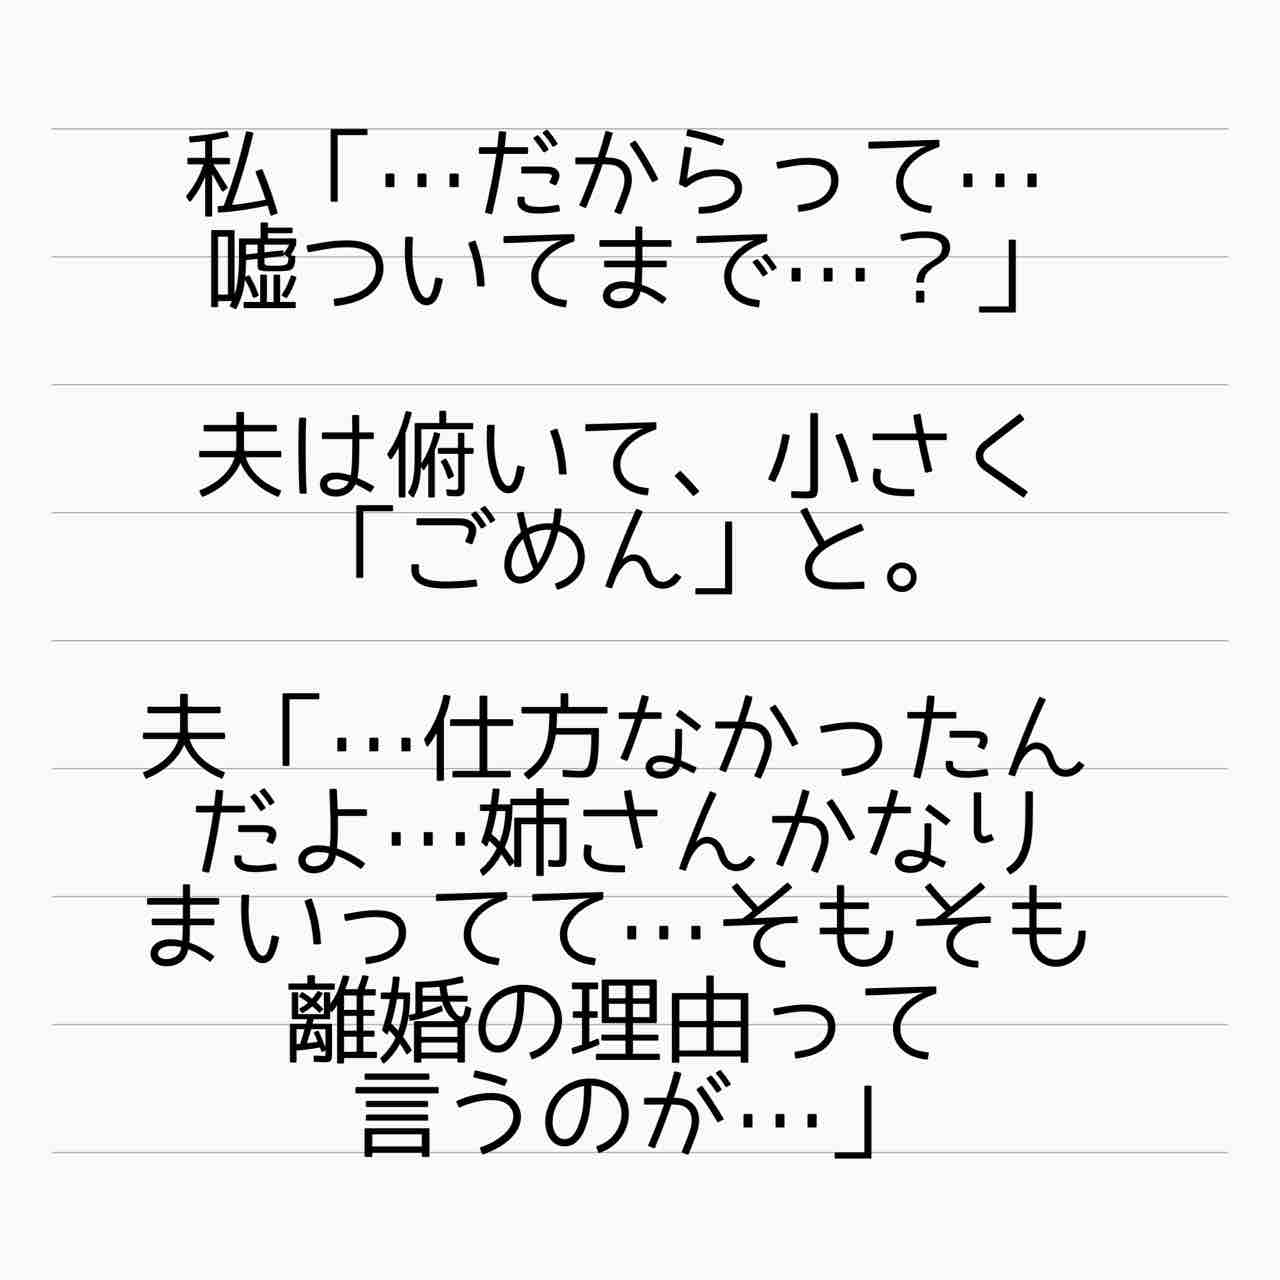 私「…だからって…
嘘ついてまで…？」
夫は俯いて、小さく
「ごめん」と。
夫「…仕方なかったん
だよ…姉さんかなり
まいってて…そもそも
離婚の理由って
言うのが…」